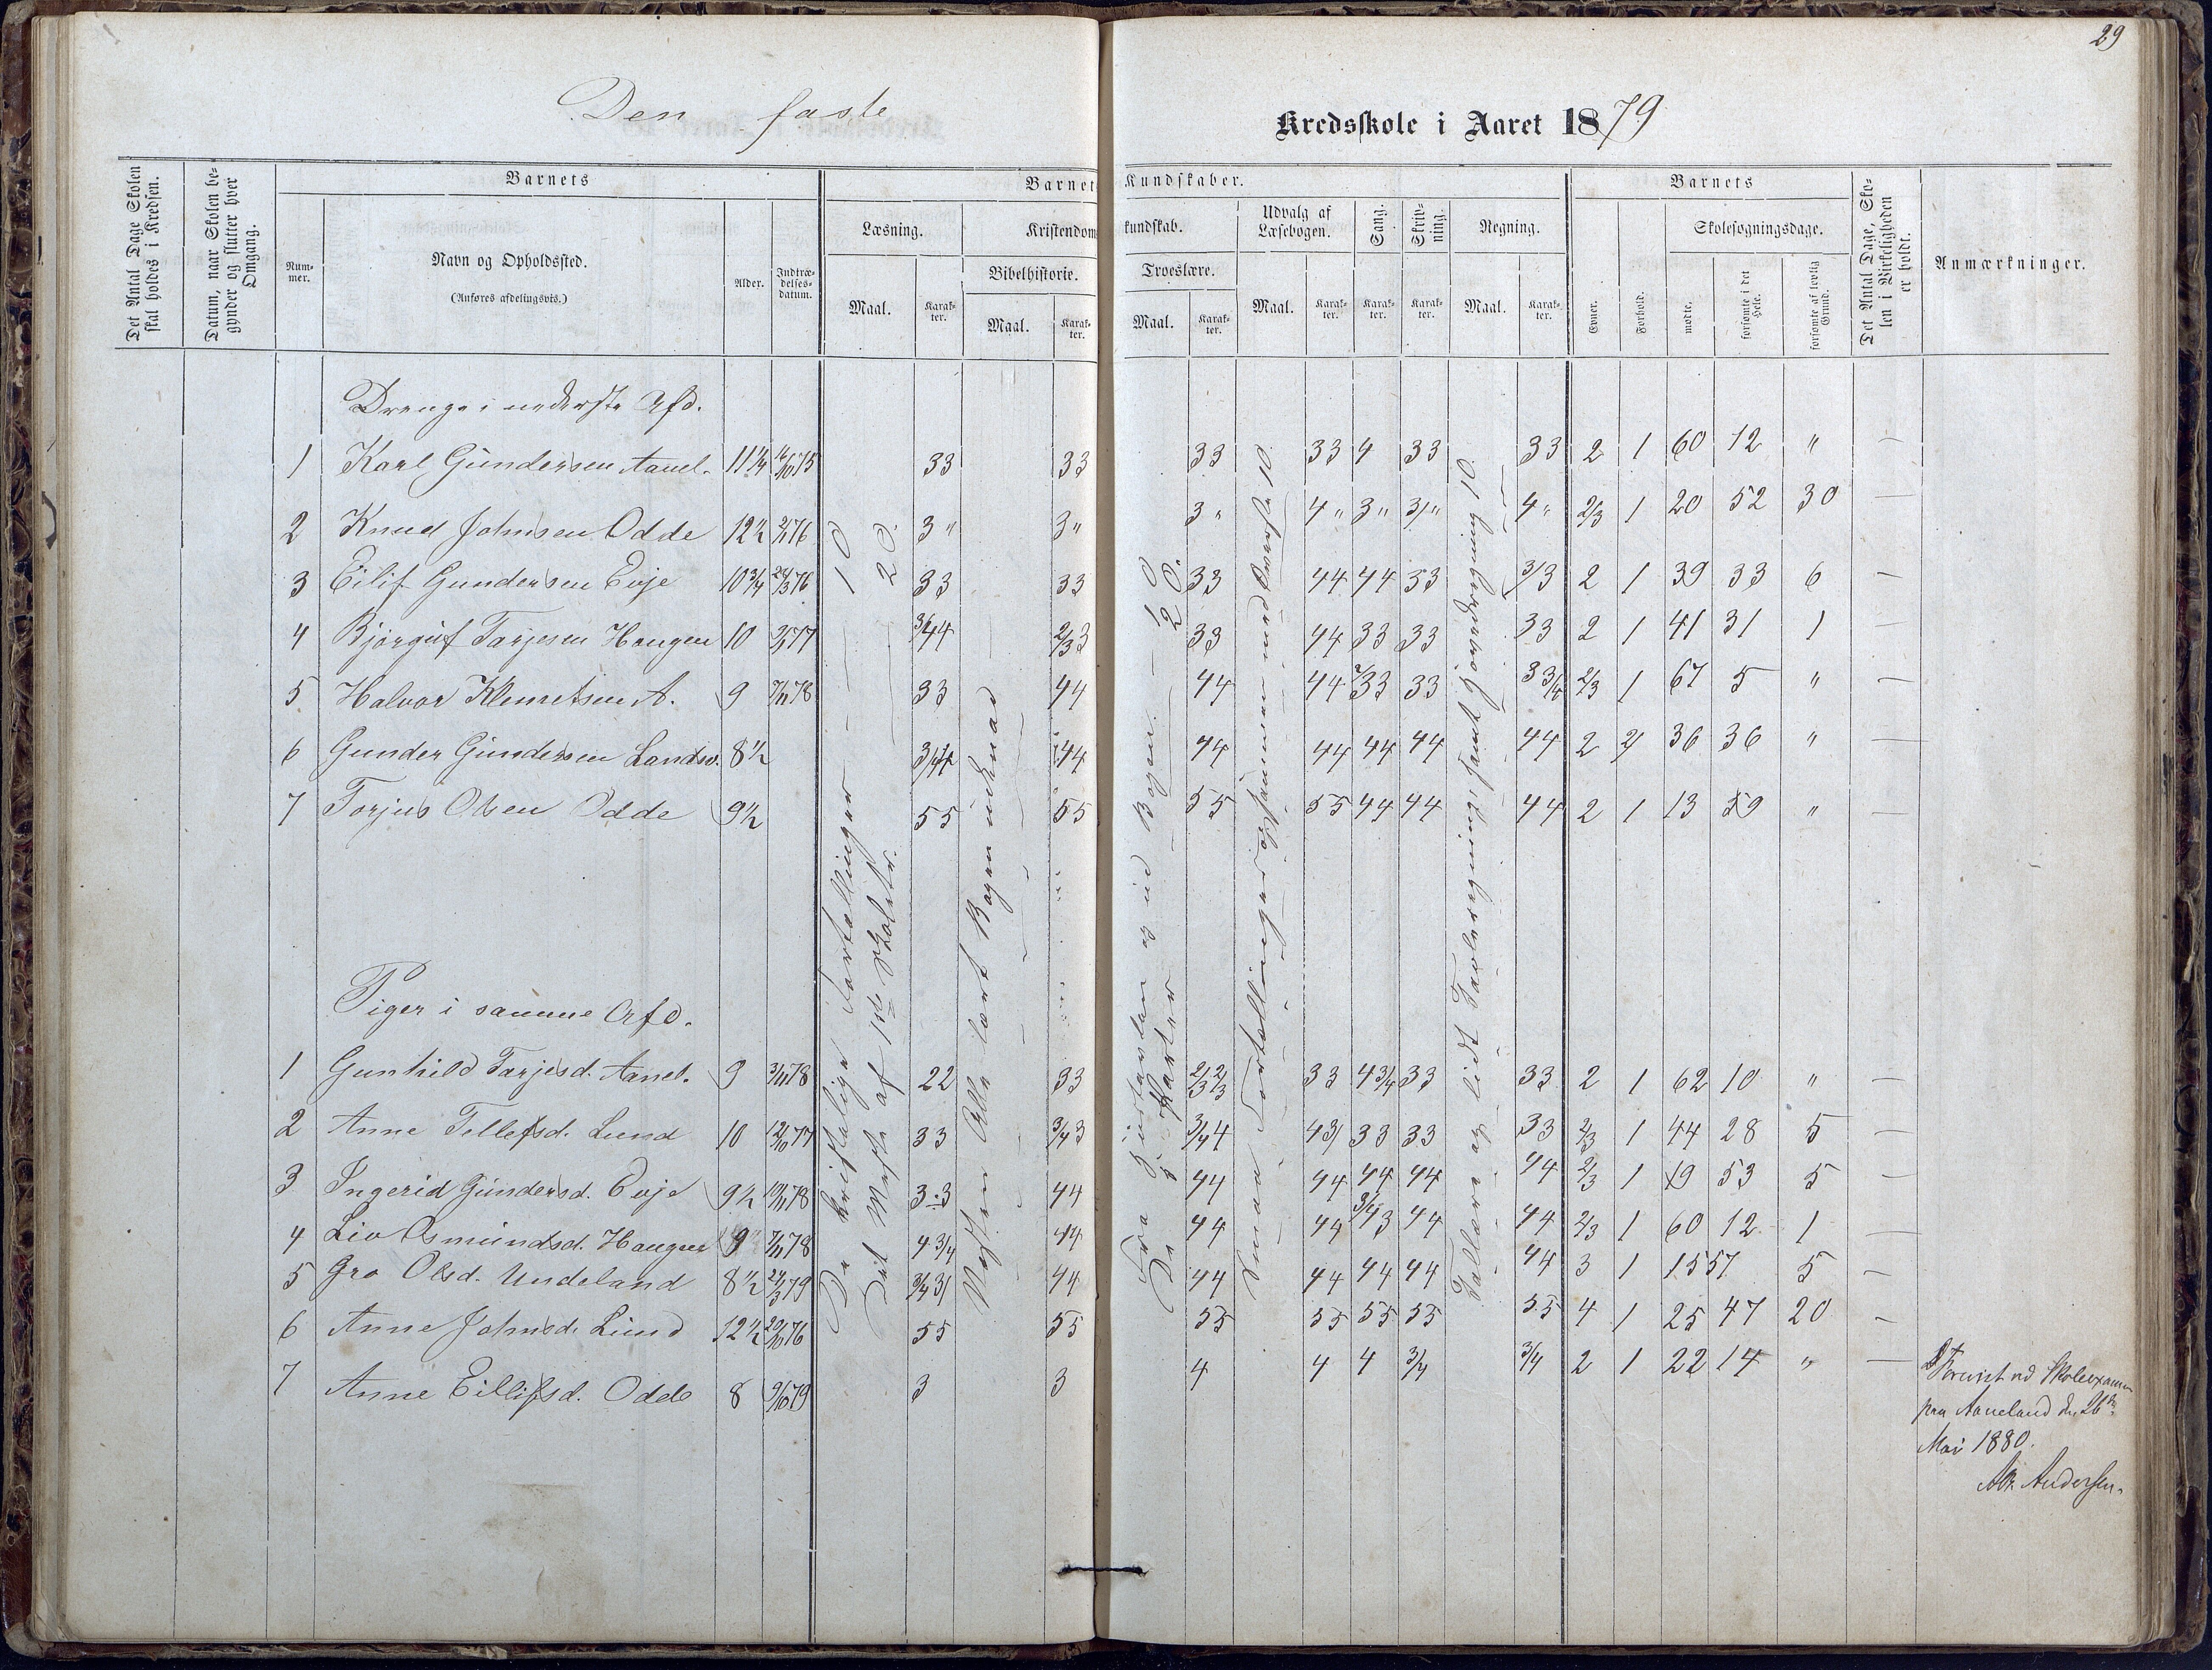 29
Den faste Kredsskole i Aaret 1879
Det Antal Dage Skolen skal holdes i Kredsen.
Datum, naar Skolen begynder og slutter hver Omgang.
Barnets
Nummer.
Navn og Opholdssted.
(Anføres afdelingsvis.)
Alder.
Indtrædelsesdatum.
Barnets Kundskaber.
Læsning.
Maal.
Karakter.
Kristendomskundskab.
Bibelhistorie.
Maal.
Karakter.
Troeslære.
Maal.
Karakter.
Udvalg af Læsebogen.
Maal.
Karakter.
Sang.
Karakter.
Skrivning.
Karakter.
Regning.
Maal.
Karakter.
Barnets
Evner.
Forhold.
Skolesøgningsdage.
mødte.
forsømte i det Hele.
forsømte af lovlig Grund.
Det Antal Dage, Skolen i Virkeligheden er holdt.
Anmærkninger.
Drenge i nederste Afd.
1 Karl Gundersen Aanel. 11 1/4 33 33 33 33 4 33 33 2 1 60 12 " —
2 Knud Johnsen Odde 12 1/2 2/1 76 3 " 3 " 3 " 4 " 3 " 3/ " 4 " 2/3 1 20 52 30 —
3 Eilif Gundersen Evje 10 3/4 24/3 76 33 33 33 44 44 33 3/3 2 1 39 33 6 —
4 Bjørguf Tarjesen Haugen 10 3/44 2/33 33 44 33 33 33 2 1 41 31 1 —
5 Halvor Klemetsen A. 9 7/11 78 33 44 44 44 33 33 3/4 2/3 1 67 5 " —
6 Gunder Gundersen Landsv. 8 1/2 44 44 44 44 44 44 2 2/ 36 36 " —
7 Torjus Olsen Odde 9 1/2 55 55 55 55 44 44 44 2 1 13 59 " —
Piger i samme Afd.
1 Gunhild Tarjesd. Aanel. 9 3/11 78 22 33 2/3 2/3 33 4 3/4 33 33 2 1 62 10 " —
2 Anne Tellefsd. Lund 10 12/10 77 33 3/4 3 3/4 4 43/ 33 33 33 2/3 1 44 28 5 —
3 Ingerid Gundersd. Evje 9 1/2 10/11 78 3.3 44 44 44 44 44 44 2/3 1 19 53 5 —
4 Liv Osmundsd. Haugen 9 7/11 78 4 3/4 44 44 44 3/4 3 44 44 2/3 1 60 12 1 —
5 Gro Olsd. Undeland 8 1/2 24/3 79 3/4 3/ 44 44 44 44 44 44 3 1 15 57 5 —
6 Anne Johnsd. Lund 12 1/2 20/10 76 55 55 55 55 55 55 55 4 1 25 47 20 —
7 Anne Eilifsd. Odde 8 9/10 79 3 3 4 4 4 3/4 3/4 2 1 22 14 " —
De kristelige Fortællinger — 1 O
Det Meste af 1ste Skoletr. 2 O.
Næsten Alle lært Bogen
Smaa Fortællinger
Forevist ved Skoleexamen
paa Aaneland den 26de
Mai 1880.
Andersen.